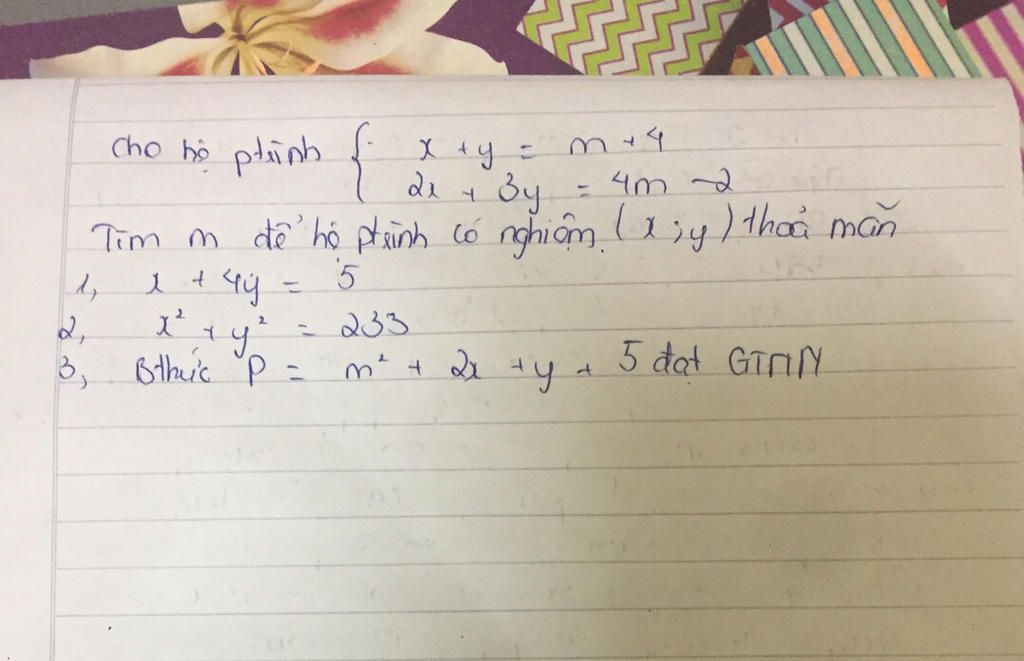 Cho hệ ptrình { x + y = m + 4
2x + 3y = 4m - 2
Tìm m để hệ ptrình có nghiệm (x;y) thoả mãn
1, x + 4y = 5
2, x² + y² = 233
3, Bthức P = m² + 2x + y + 5 đạt GTNN